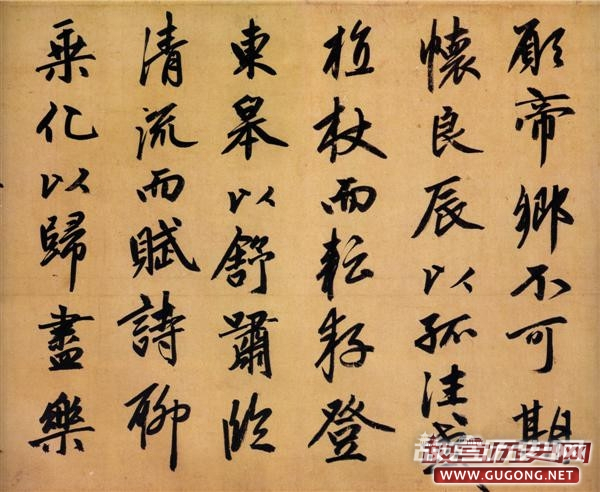 願帝鄉不可期
懷良辰以孤往或
植杖而耘耔登
東皋以舒嘯臨
清流而賦詩聊
乘化以歸盡樂
故宫历史网
WWW.GUGONG.NET